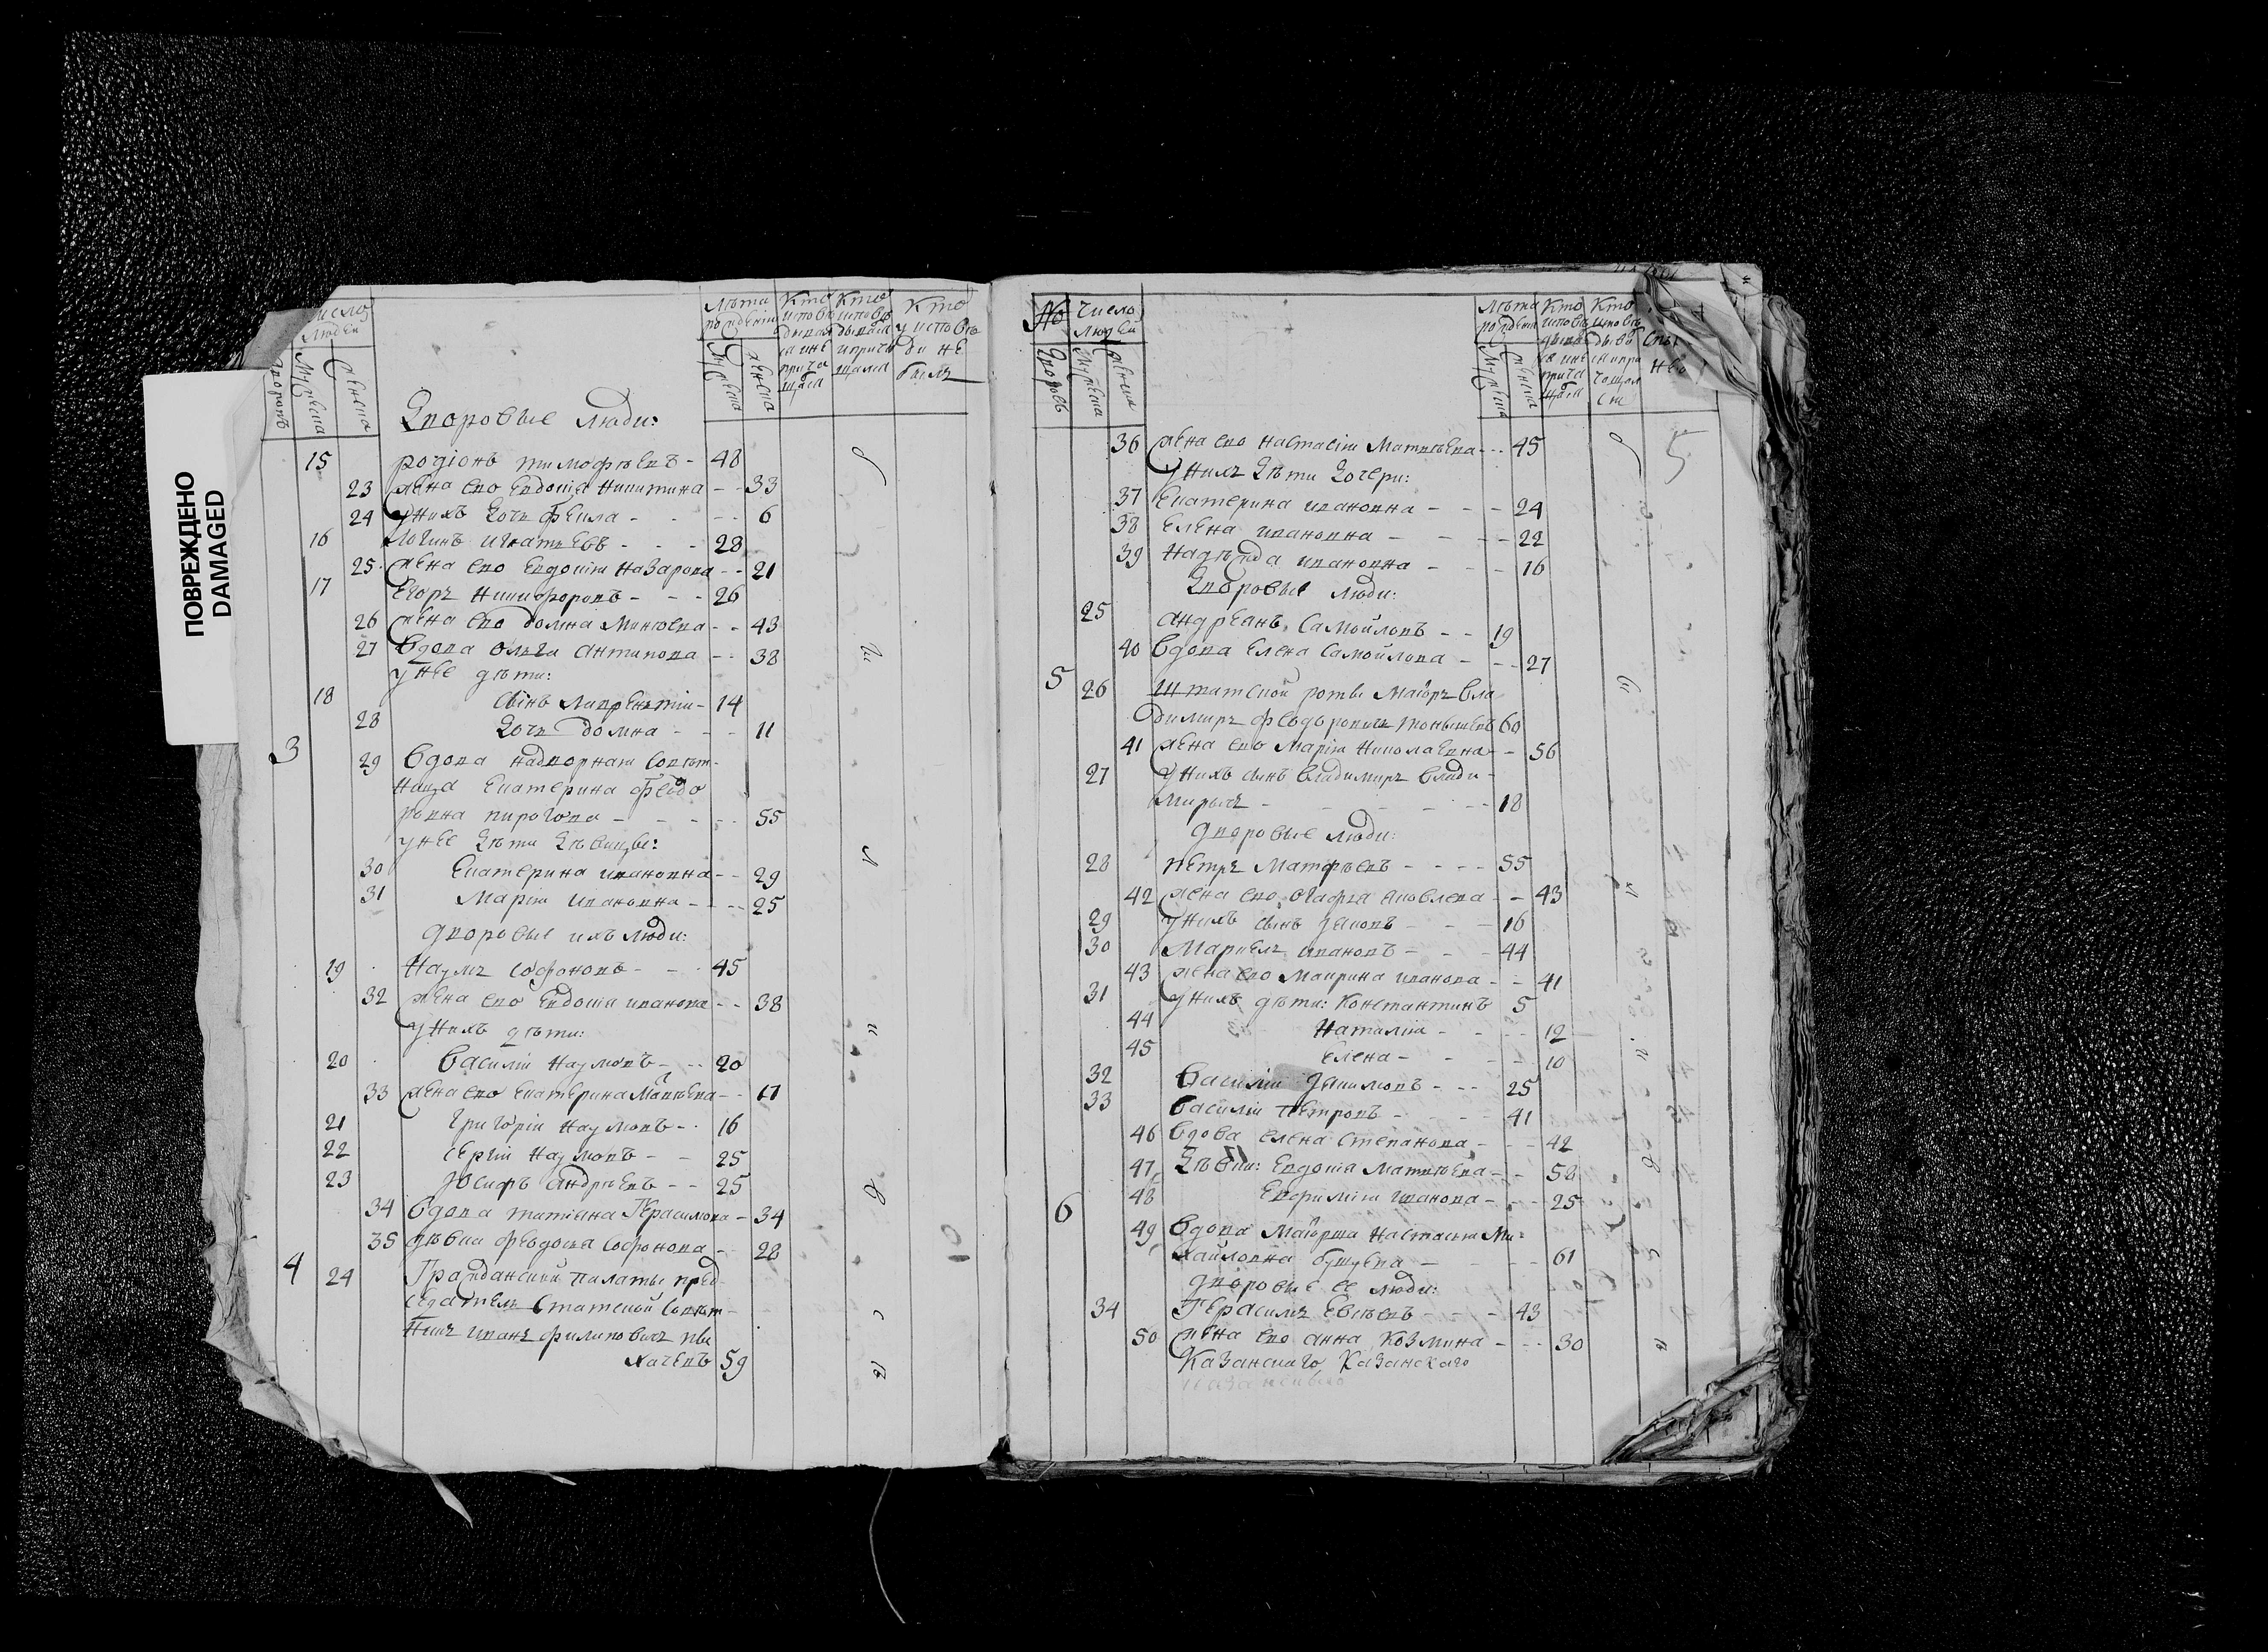 ПОВРЕЖДЕНО
DAMAGED
число людей
дворовъ
мужеска
женска
лѣта рожденiя
мужеска
женска
Кто исповѣдывался и не причащался
Кто исповѣдывался и причащался
Кто у исповѣди не былъ
Дворовые люди:
15 родiонъ тимофѣевъ - 48
23 жена ево Евдокiя Никитина - - 33
24 у нихъ дочь Фекла - - - 6
16 Логинъ игнатьевъ - - - 28
25 жена ево Евдокiя Назарова - - 21
17 Егоръ Никифоровъ - - - 26
26 жена ево домна Минѣева - - 43
27 Вдова ольга антипова - - 38
у нее дѣти:
18 сынъ лаврентiи - 14
28 дочь домна - - - 11
3
29 Вдова надворная Совѣт-
ница Екатерина Феодо
ровна пирогова - - - - 55
у нее дѣти дѣвицы:
30 Екатерина ивановна - - 29
31 Марiя ивановна - - - 25
дворовые ихъ люди:
19 Наумъ Софоновъ - - - 45
32 жена ево Евдокiя иванова - - 38
у нихъ дѣти:
20 Василiи Наумовъ - - - 20
33 жена ево Екатерина Матвѣева - - 17
21 григорiи Наумовъ - - 16
22 сергiи Наумовъ - - 25
23 Iосифъ андрѣевъ - - 25
34 Вдова татiана Герасимова - 34
35 дѣвка феодосья Софонова - 28
4 24 Гражданской палаты пред-
седатель Статской Совѣт-
никъ иванъ филиповичь
59
№
дворовъ
число людей
мужеска
женска
лѣта рожденiя
мужеска
женска
5
36 жена ево настасiя Матвѣева - - 45
у нихъ дѣти дочери:
37 Екатерина ивановна - - - 24
38 Елена ивановна - - - 22
39 Надѣжда ивановна - - - 16
Дворовые люди:
25 андреанъ Самойловъ - - 19
40 Вдова Елена Самойлова - - - 27
5 26 Штатской роты Маiоръ Вла
димиръ Феодоровичь 60
41 жена ево Марiя Николаевна - - 56
27 у нихъ сынъ Владимиръ Влади-
мирычь - - - - - 18
дворовые люди:
28 петръ Матфѣевъ - - - - 55
42 жена ево Агафья яковлева - - 43
29 у нихъ сынъ - - - 16
30 Маркелъ ивановъ - - - 44
43 жена ево Маврина иванова - - 41
31 у нихъ дѣти: Константинъ 5
44 Наталiя - - - 12
45 елена - - - 10
32 Василiи - - - 25
33 Василiи петровъ - - - 41
46 Вдова елена Степанова - - - 42
47 дѣвки: Евдокiя Матвѣева - - 58
48 Евфимiя иванова - - - 25
6
49 Вдова Маiорша Настасья Ми-
хайловна - - - 61
дворовые ее люди:
34 Герасимъ Евсѣевъ - - - 43
50 жена ево анна Козмина - - - 30
Казанскаго Казанскаго